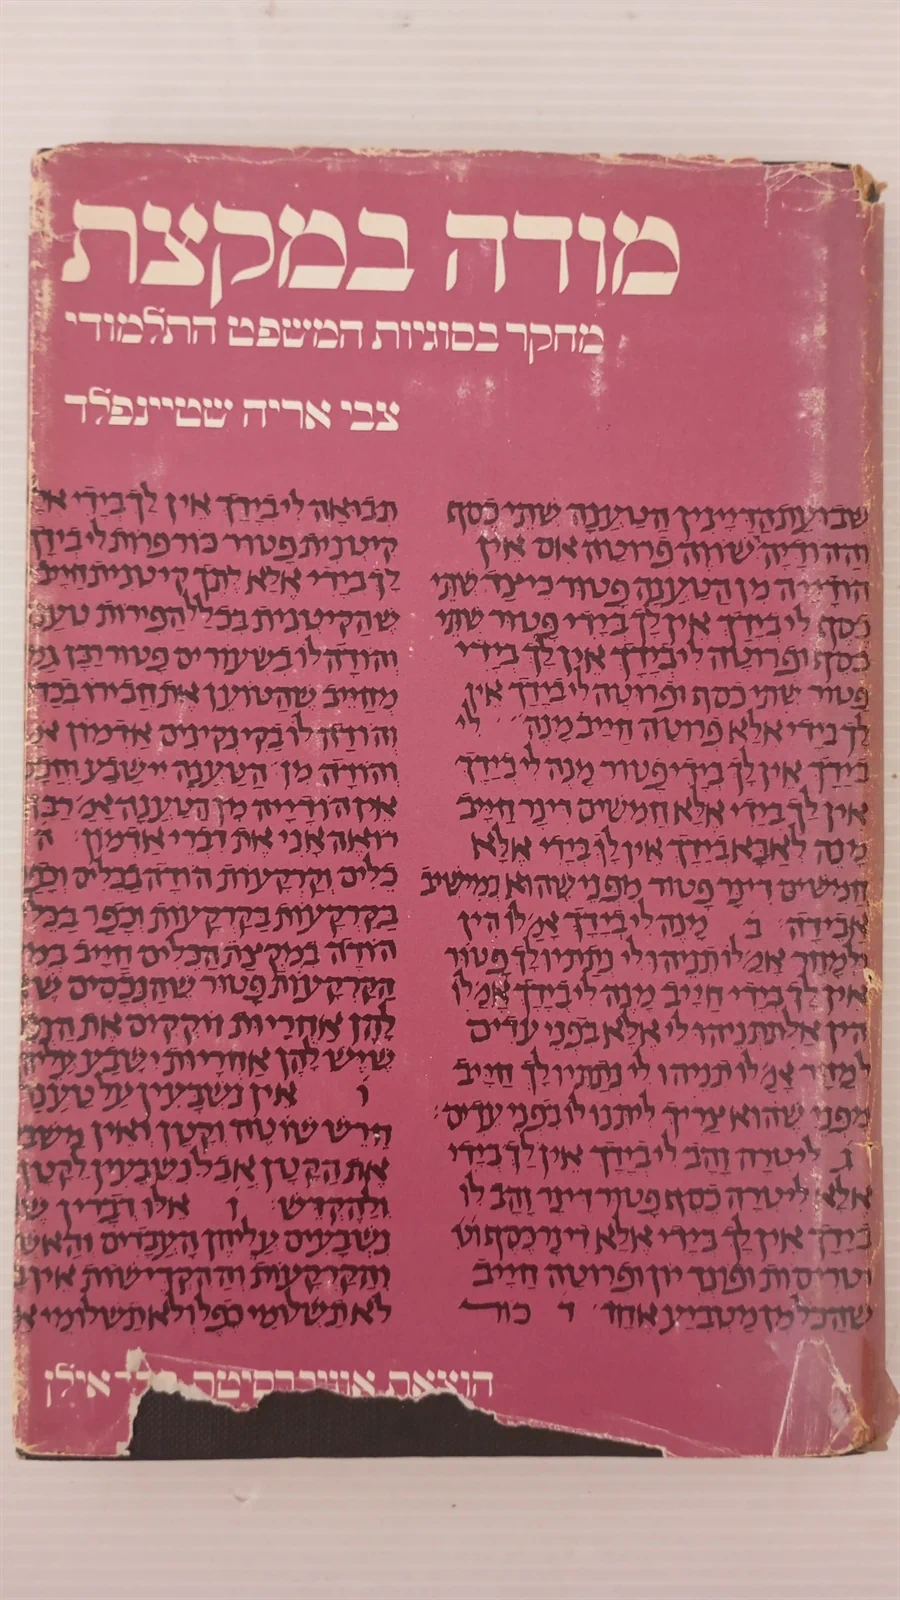 מודה במקצת
מחקר בסוגיות המשפט התלמודי
צבי אריה שטיינפלד
שבועת הדיינין הטענה שתי כסף
וההודיה שווה פרוטה אום אין
הודייה מן הטענה פטור כיצד שתי
כסף לי בידך אין לך בידי פטור שתי
כסף ופרוטה לי בידך אין לך בידי
פטור שתי כסף ופרוטה לי בידך אין
לך בידי אלא פרוטה חייב מנה לי
בידך אין לך בידי פטור מנה לי בידך
אין לך בידי אלא חמשים דינר חייב
מנה לאבא בידך אין לו בידי אלא
חמשים דינר פטור מפני שהוא כמישיב
אבידה ב מנה לי בידך אמ' לו הין
ולמחר אמ' לו תניהו לי נתתיו לך פטור
אין לך בידי חייב מנה לי בידך אמ' לו
הין אל תתניהו לי אלא בפני עדים
למחר אמ' לו תניהו לי נתתיו לך חייב
מפני שהוא צריך ליתנו לו בפני עדים
ג ליטרה זהב לי בידך אין לך בידי
אלא ליטרה כסף פטור דינר זהב לו
בידך אין לך בידי אלא דינר כסף וט
וטריסית ופונד יון ופרוטה חייב
שהכל מן מטביע אחד ד כור
תבואה לי בידך אין לך בידי
קיטנית פטור כור פרות לי בידך
לך בידי אלא לתך קיטנית חייב
שהקיטנית בכלל הפירות
והודה לו בשעורים פטור ורבן
מחייב שהטוען את חבירו בכדי
והודה לו בקינקינים אדמון
והודה מן הטענה יישבע וחכמ
אין הודייה מן הטענה אמ' רבן
רואה אני את דברי אדמון ה
כלים וקרקעות הודה בכלים וכפר
בקרקעות בקרקעות וכפר בכל
הודה במקצת הכלים חייב
הקרקעות פטור שהנכסים
להן אחריות זוקקים את
שיש להן אחריות ישבע עליה
ו אין נשבעין על טענת
חרש שוטה וקטן ואין משב
את הקטן אבל נשבעין לקטן
ולהקדש ו אלו דברין
נשבעים עליהן העבדים
והקרקעות וההקדישות אין
לא תשלומי כפל ולא תשלומי
הוצאת אוניברסיטת בר־אילן